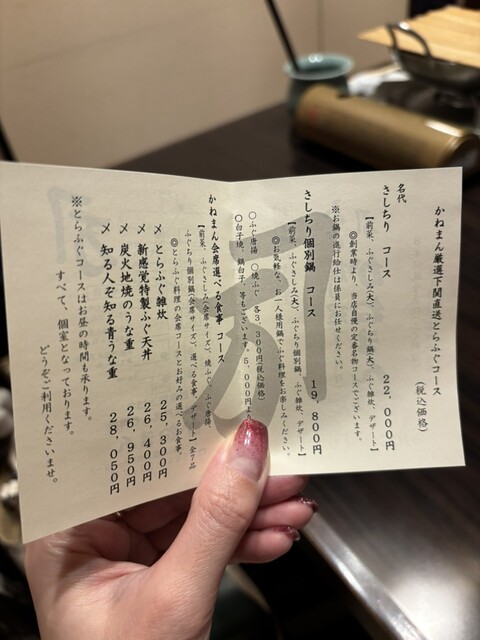 かねまん厳選下関直送とらふぐコース
(税込価格)
名代
さしちり コース 22,000円
【前菜、ふぐさしみ(大)、ふぐちり鍋(大)、ふぐ雑炊、デザート】
◎創業時より、当店自慢の定番名物コースでございます。
※お鍋の進行給仕は係員にお任せください。
さしちり個別鍋 コース 19,800円
【前菜、ふぐさしみ(大)、ふぐちり個別鍋、ふぐ雑炊、デザート】
◎お気軽な、お一人様用鍋でふぐ料理をお楽しみください。
〇ふぐ唐揚 〇焼ふぐ 各3,300円(税込価格)
〇白子焼、鍋白子、等もございます。5,000円より
かねまん会席選べる食事 コース
【前菜、ふぐさしみ(会席サイズ)、焼ふぐ、ふぐ唐揚、
ふぐちり個別鍋(会席サイズ)、選べる食事、デザート】全7品
◎とらふぐ料理の会席コースとお好みの選べるお食事。
〆 とらふぐ雑炊 25,300円
〆 新感覚特製ふぐ天丼 26,400円
〆 炭火地焼のうな重 26,950円
〆 知る人ぞ知る青うな重 28,050円
※とらふぐコースはお昼の時間も承ります。
すべて、個室となっております。
どうぞご利用くださいませ。